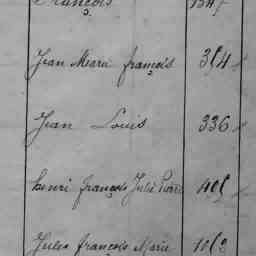 François
Jean Marie françois 354
Jean Louis 336
henri françois Jules
Jules françois Marie